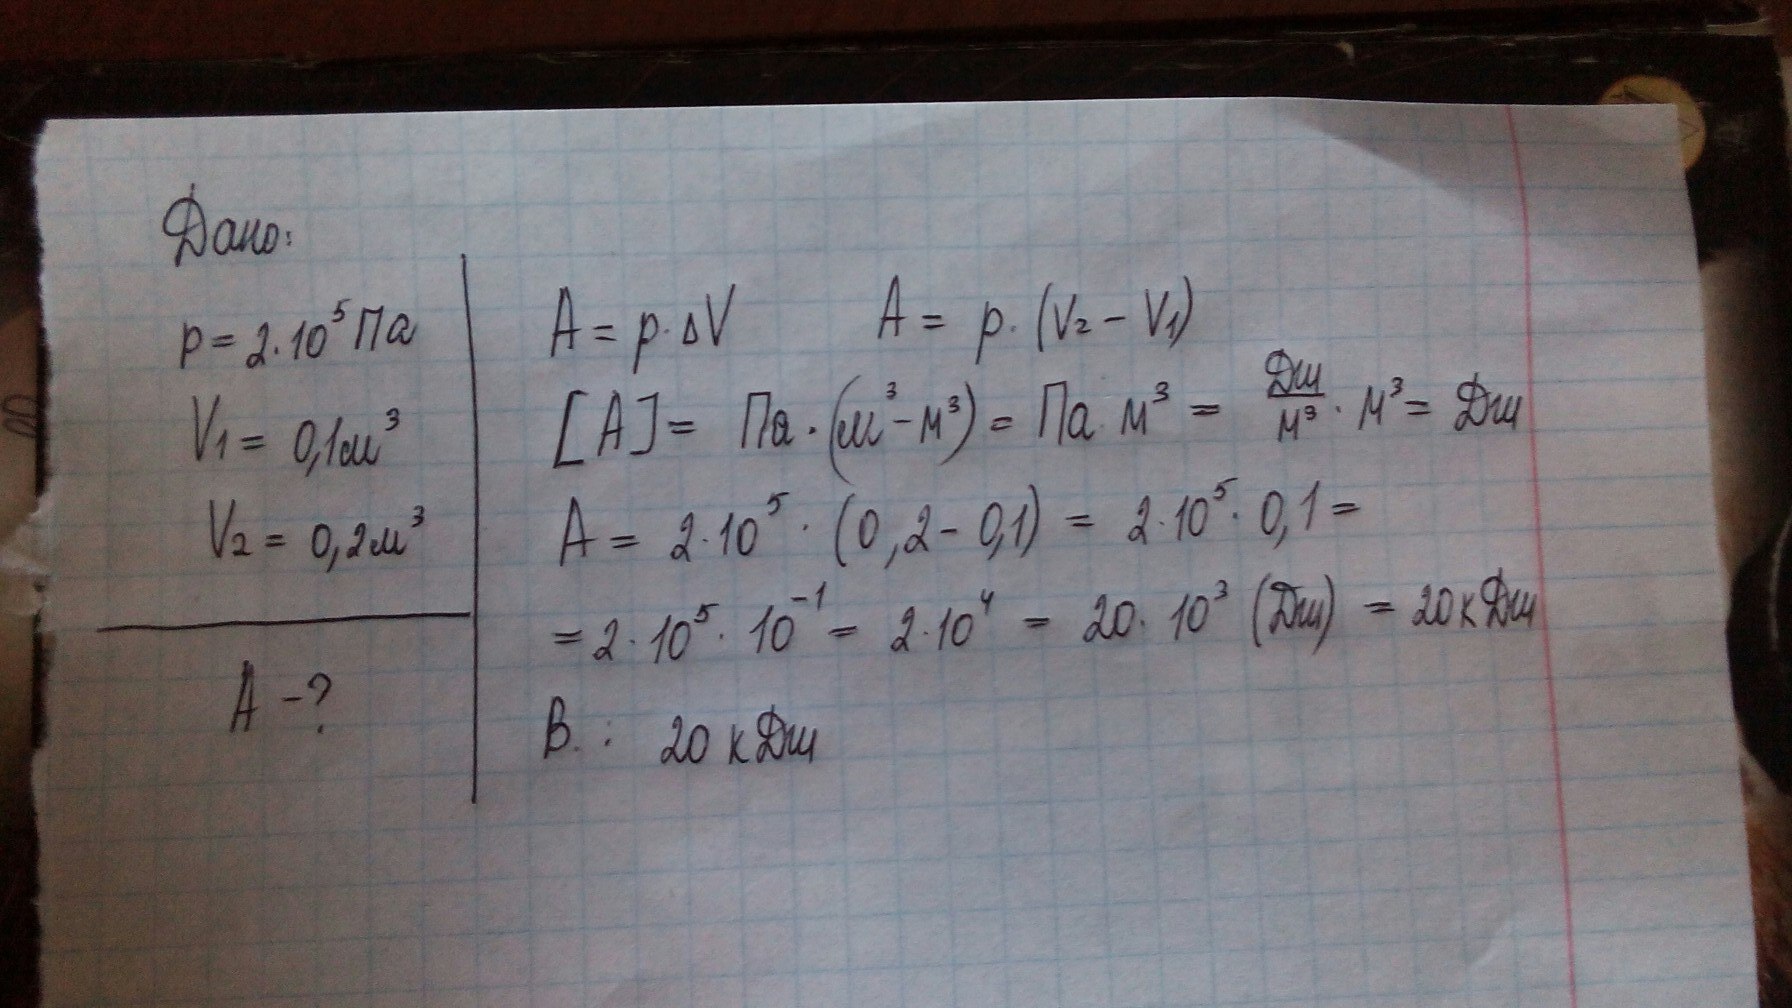 Дано:
p = 2·10⁵ Па
V₁ = 0,1м³
V₂ = 0,2м³
A – ?
A = p·ΔV A = p·(V₂ – V₁)
[A] = Па·(м³–м³) = Па·м³ = Дж/м³ · м³ = Дж
A = 2·10⁵ · (0,2–0,1) = 2·10⁵· 0,1 =
= 2·10⁵· 10⁻¹ = 2·10⁴ = 20·10³ (Дж) = 20кДж
В.: 20 кДж